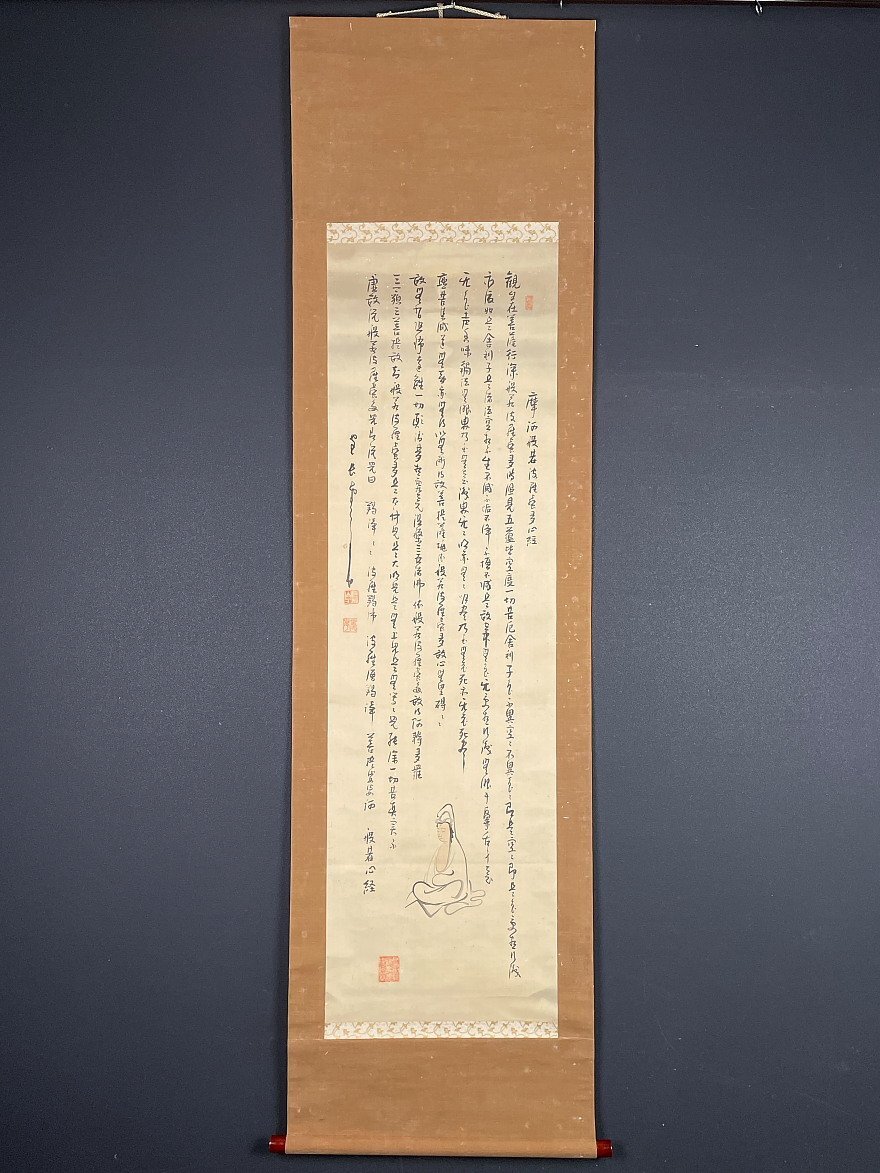 摩訶般若波羅蜜多心経
観自在菩薩行深般若波羅蜜多時照見五蘊皆空度一切苦厄舎利子色不異空々不異色々即是空々即是色受想行識
亦復如是舎利子是諸法空相不生不滅不垢不浄不増不減是故空中無色無受想行識無眼耳鼻舌身意
無色声香味触法無眼界乃至無意識界無々明亦無々明尽乃至無老死亦無老死尽
無苦集滅道無智亦無得以無所得故菩提薩埵依般若波羅蜜多故心無罣礙々々
故無有恐怖遠離一切顛倒夢想究竟涅槃三世諸仏依般若波羅蜜多故得阿耨多羅
三藐三菩提故知般若波羅蜜多是大神呪是大明呪是無上呪是無等々呪能除一切苦真実不
虚故説般若波羅蜜多呪即説呪曰 羯諦々々 波羅羯諦 波羅僧羯諦 菩提娑婆訶 般若心経